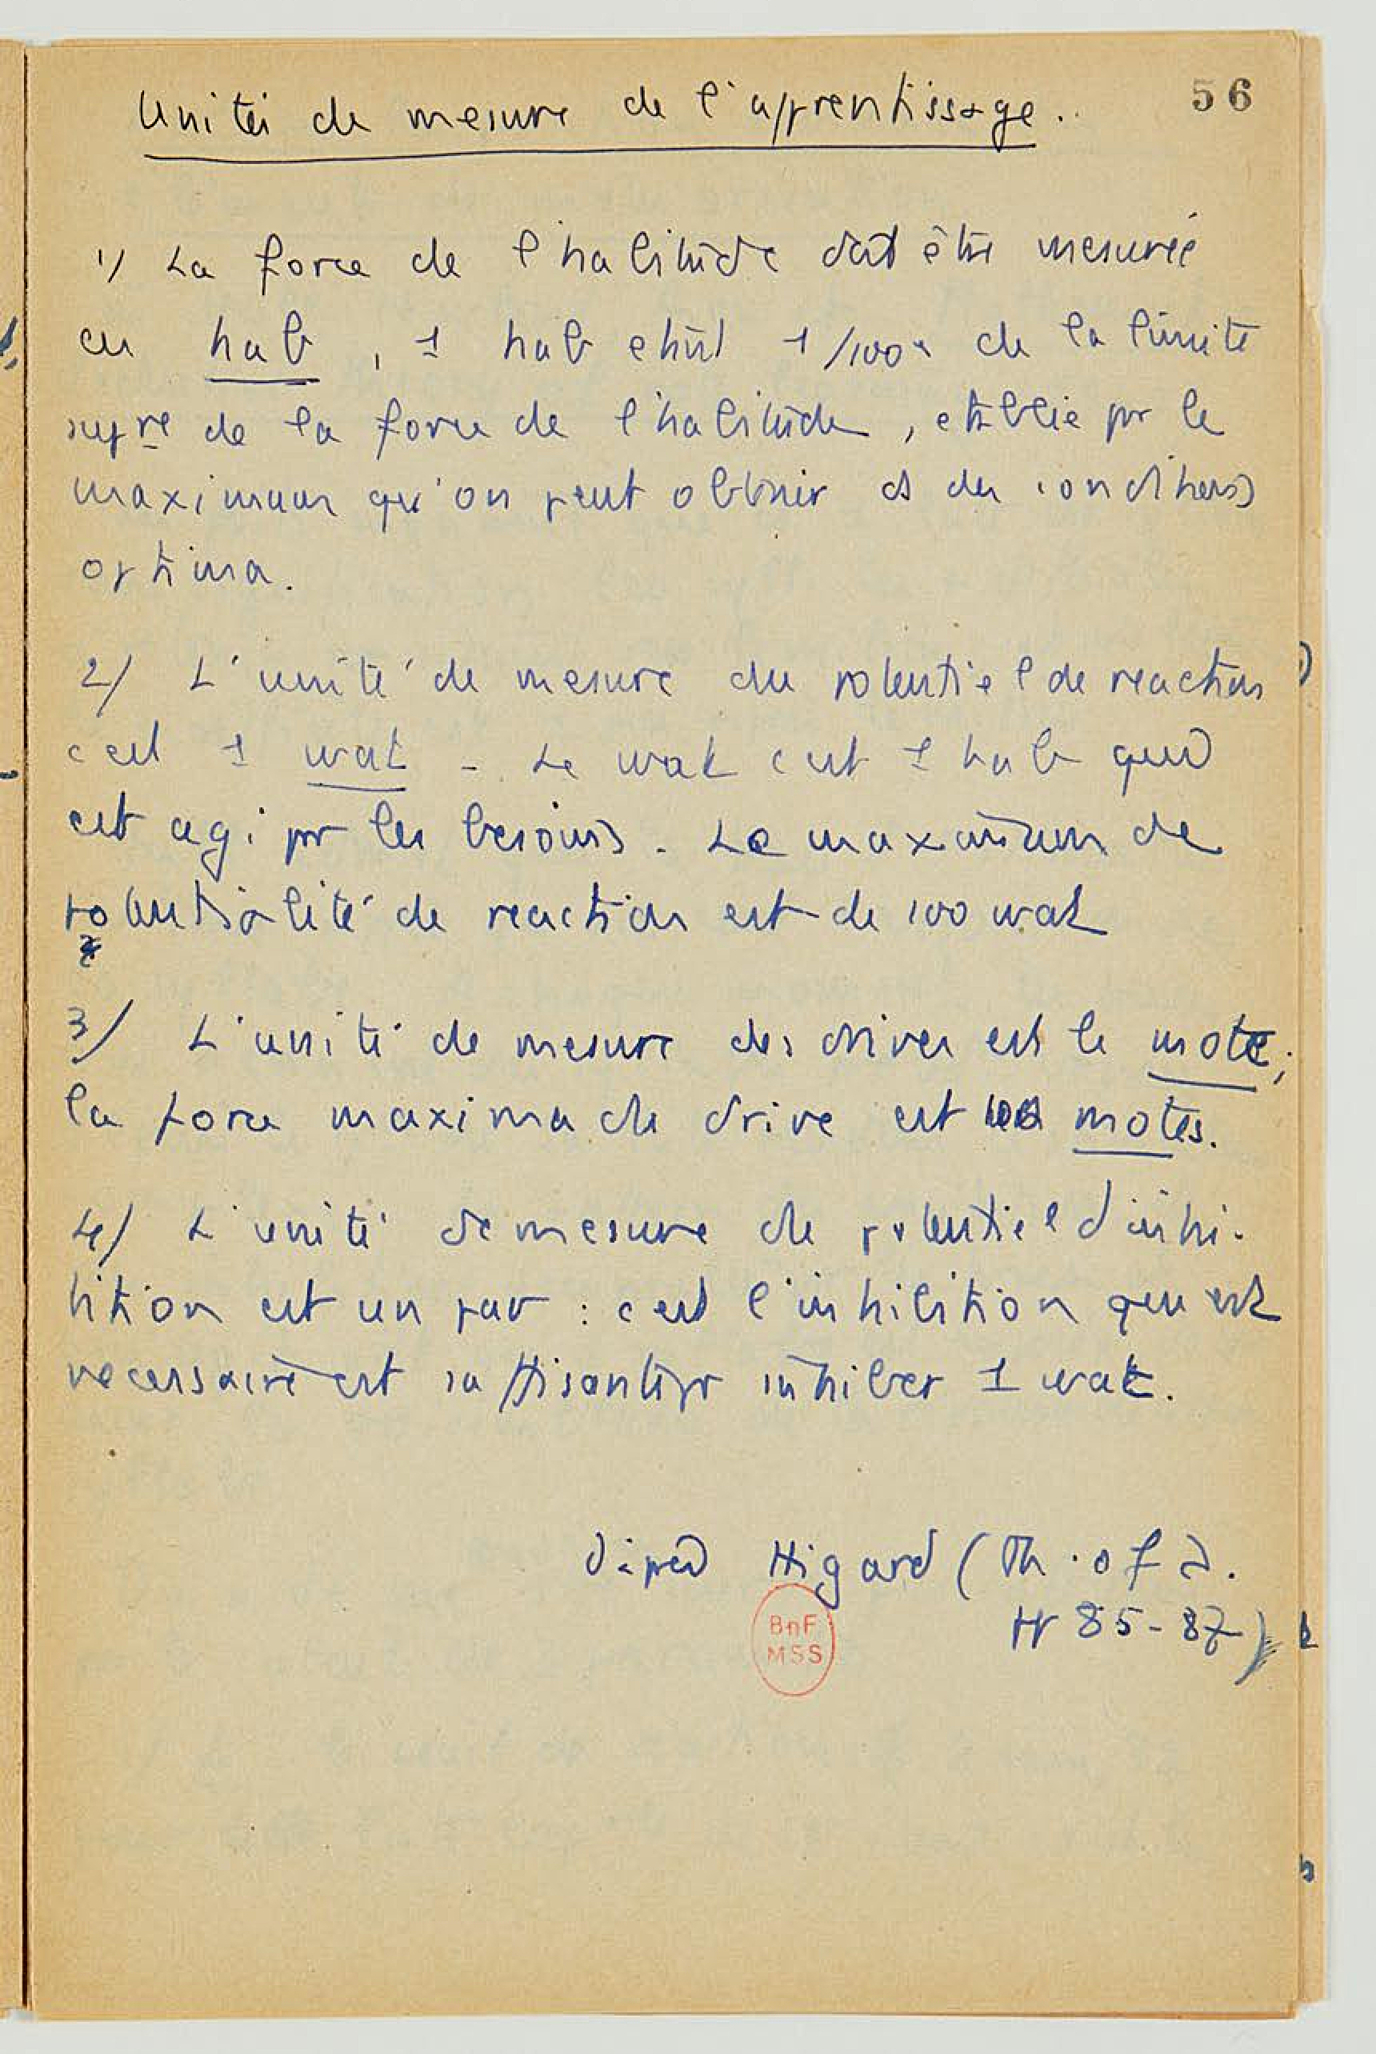 56
Unités de mesure de l'apprentissage.
1/ La force de l'habitude doit être mesurée
en hab, 1 hab étant 1/100e de la limite
supre de la force de l'habitude, établie pr le
maximum qu'on peut obtenir ds des conditions
optima.
2/ L'unité de mesure du potentiel de reaction
c'est 1 wat - Le wat c'est 1 hab qud
est agi pr les besoins. Le maximum de
potentialité de reaction est de 100 wat
3/ L'unité de mesure des drives est le mote;
la force maxima de drive est 100 motes.
4/ L'unité de mesure de potentiel d'inhi-
bition est un pav : c'est l'inhibition qui est
necessaire et suffisante pr inhiber 1 wat.
d'après Higard (Th. of
85-87)
BnF
MSS